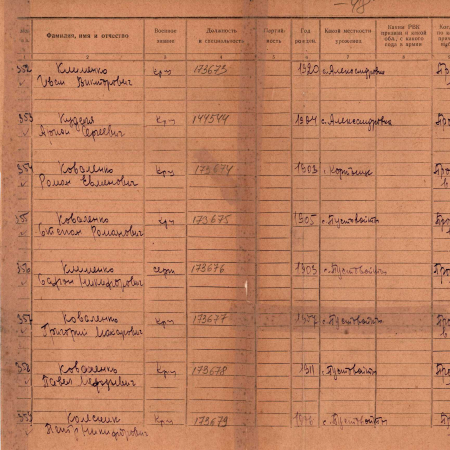 -48
Фамилия, имя и отчество
Военное звание
Должность и специальность
Партий- ность
Год рожден.
Какой местности уроженец
Каким РВК призван и какой обл., с какого года в армии
2 3 4 5 6 7 8
352 Клименко Иван Викторович крц 173673 1920 с. Александровка
353 Арсен Сергеевич крц 144544 1904 с. Александровка
354 Коваленко Роман Евменович крц 173674 1903
355 Коваленко Степан Романович крц 173675 1905 с. Пустовойты
356 Клименко Никифорович серж 173676 1903 с. Пустовойты
357 Коваленко Григорий Макарович крц 173677 с. Пустовойты
358 Коваленко Павел крц 173678 1911 с. Пустовойты
359 Колесник Петр Никифорович крц 173679 с. Пустовойты